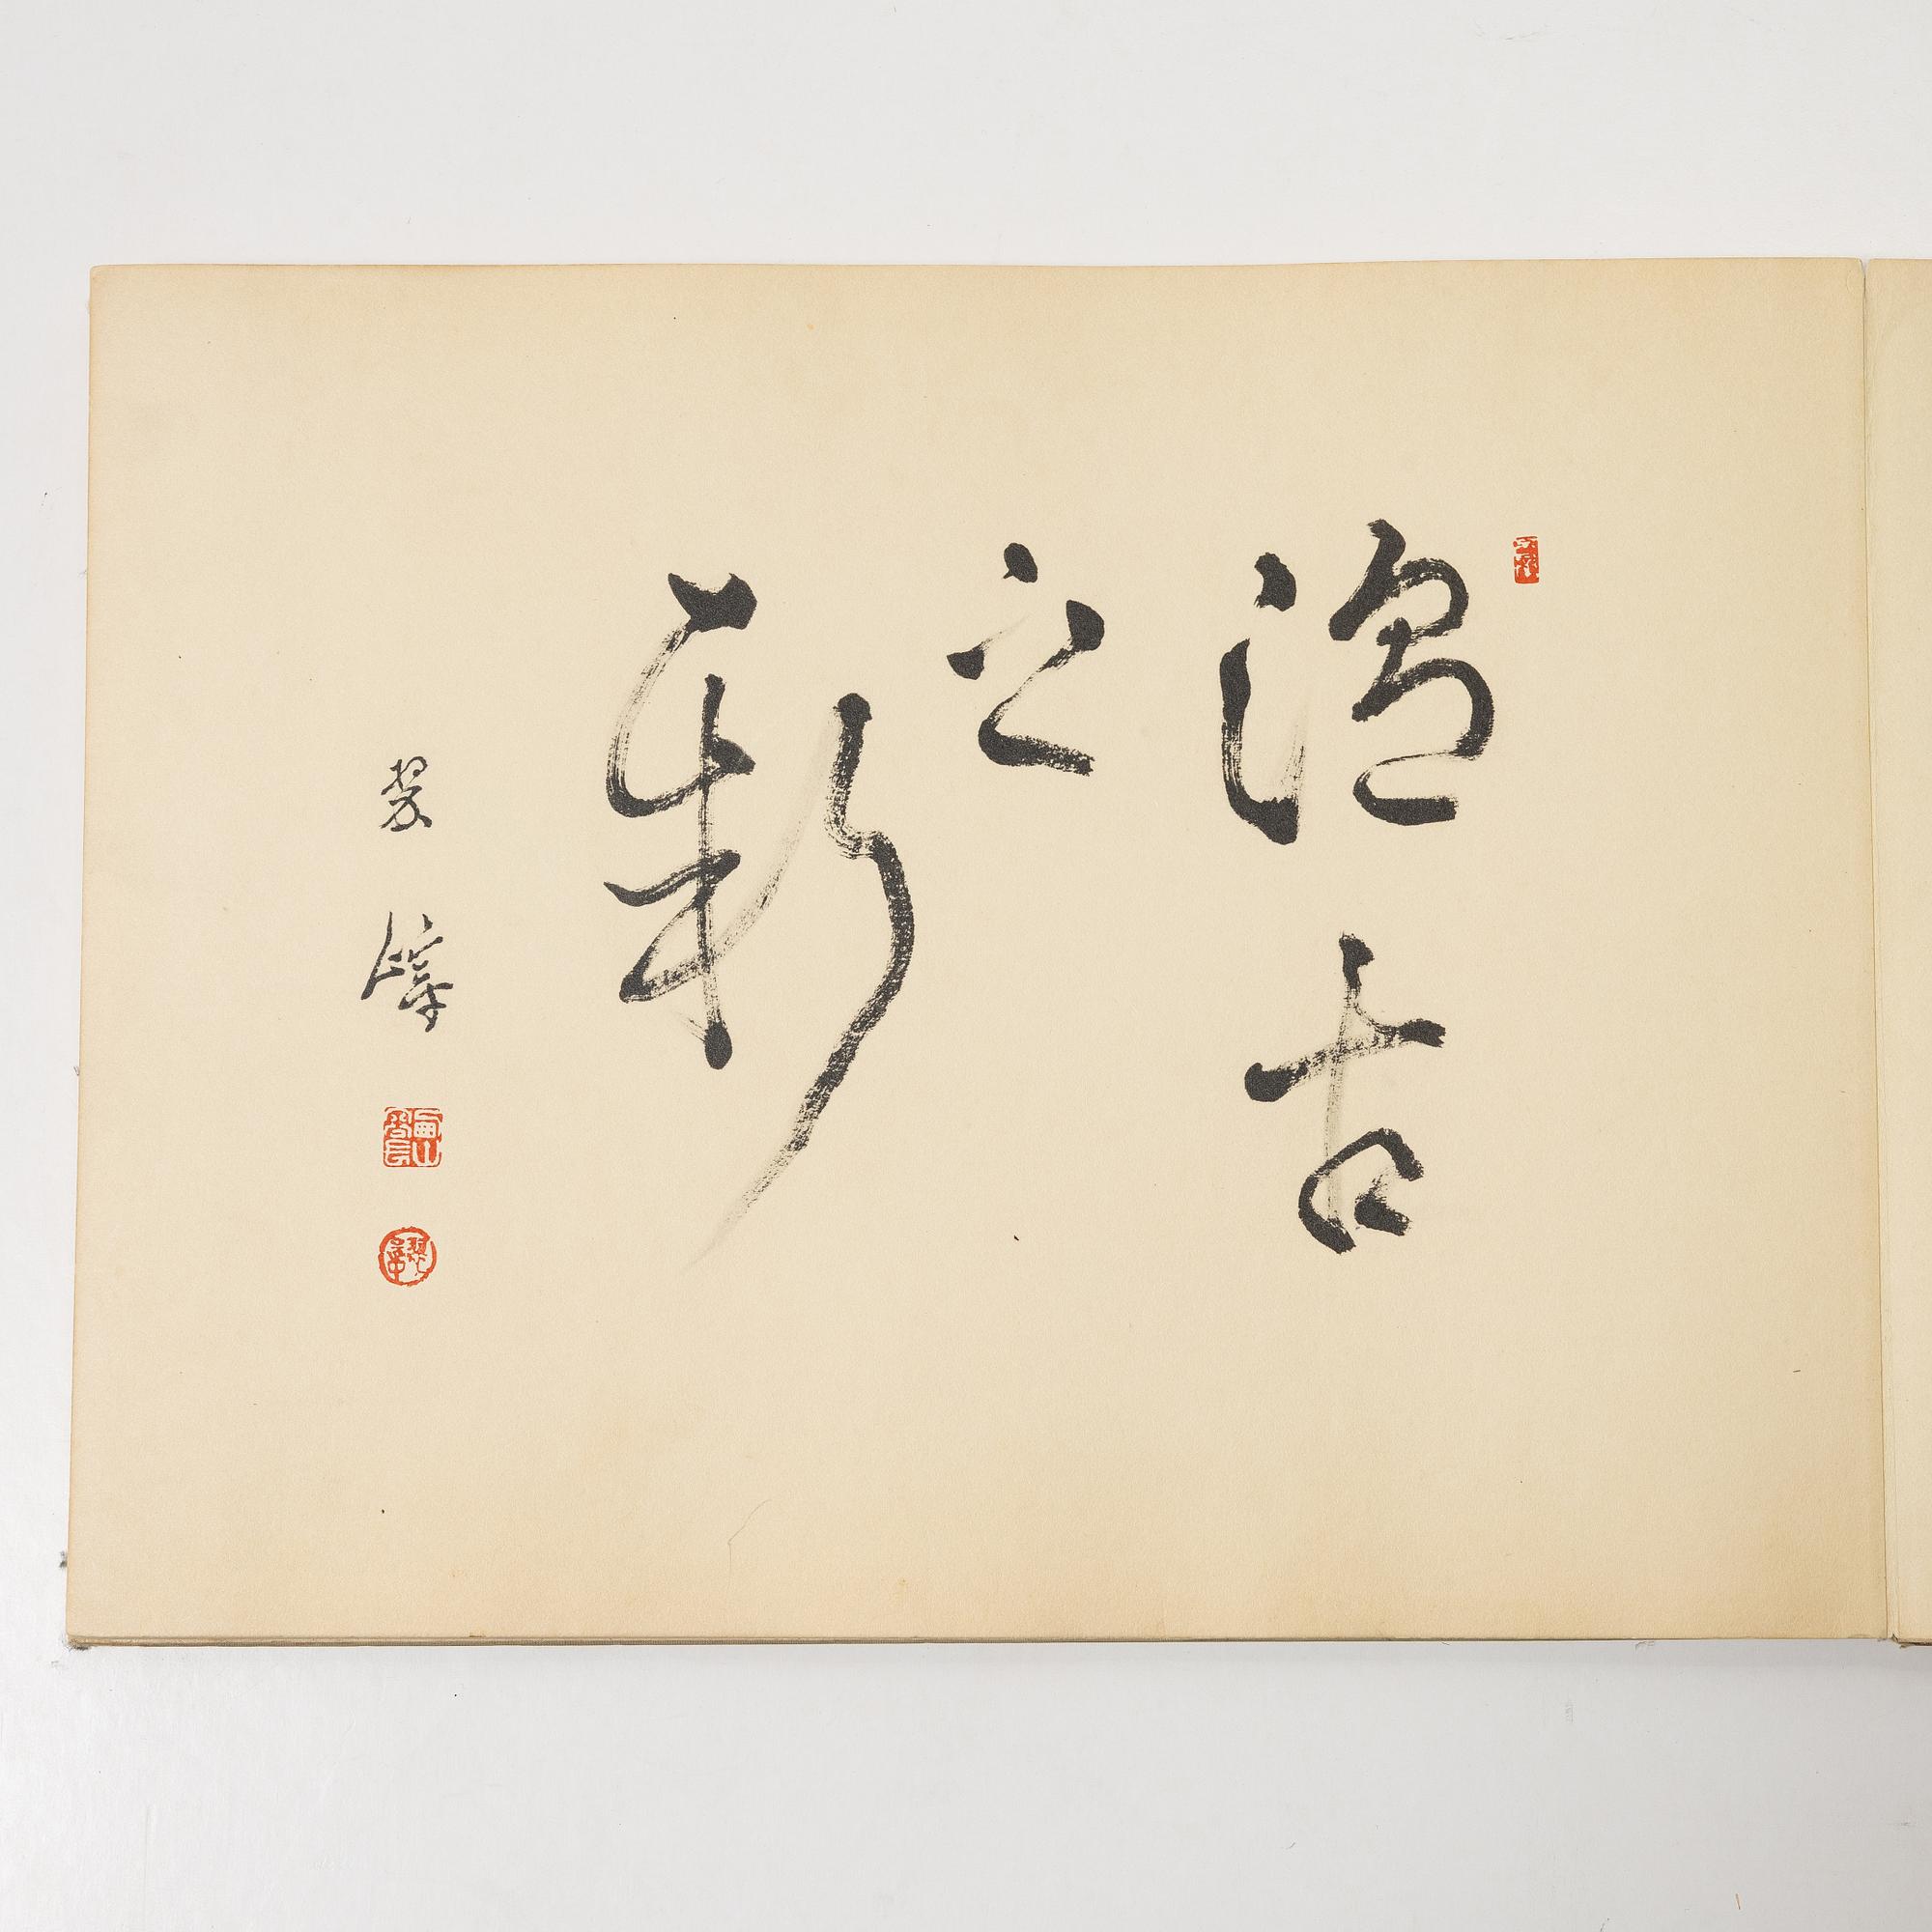 温古
之新
翠